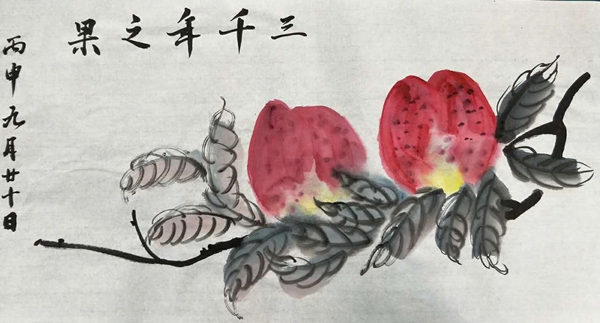 三千年之果
丙申九月廿十日